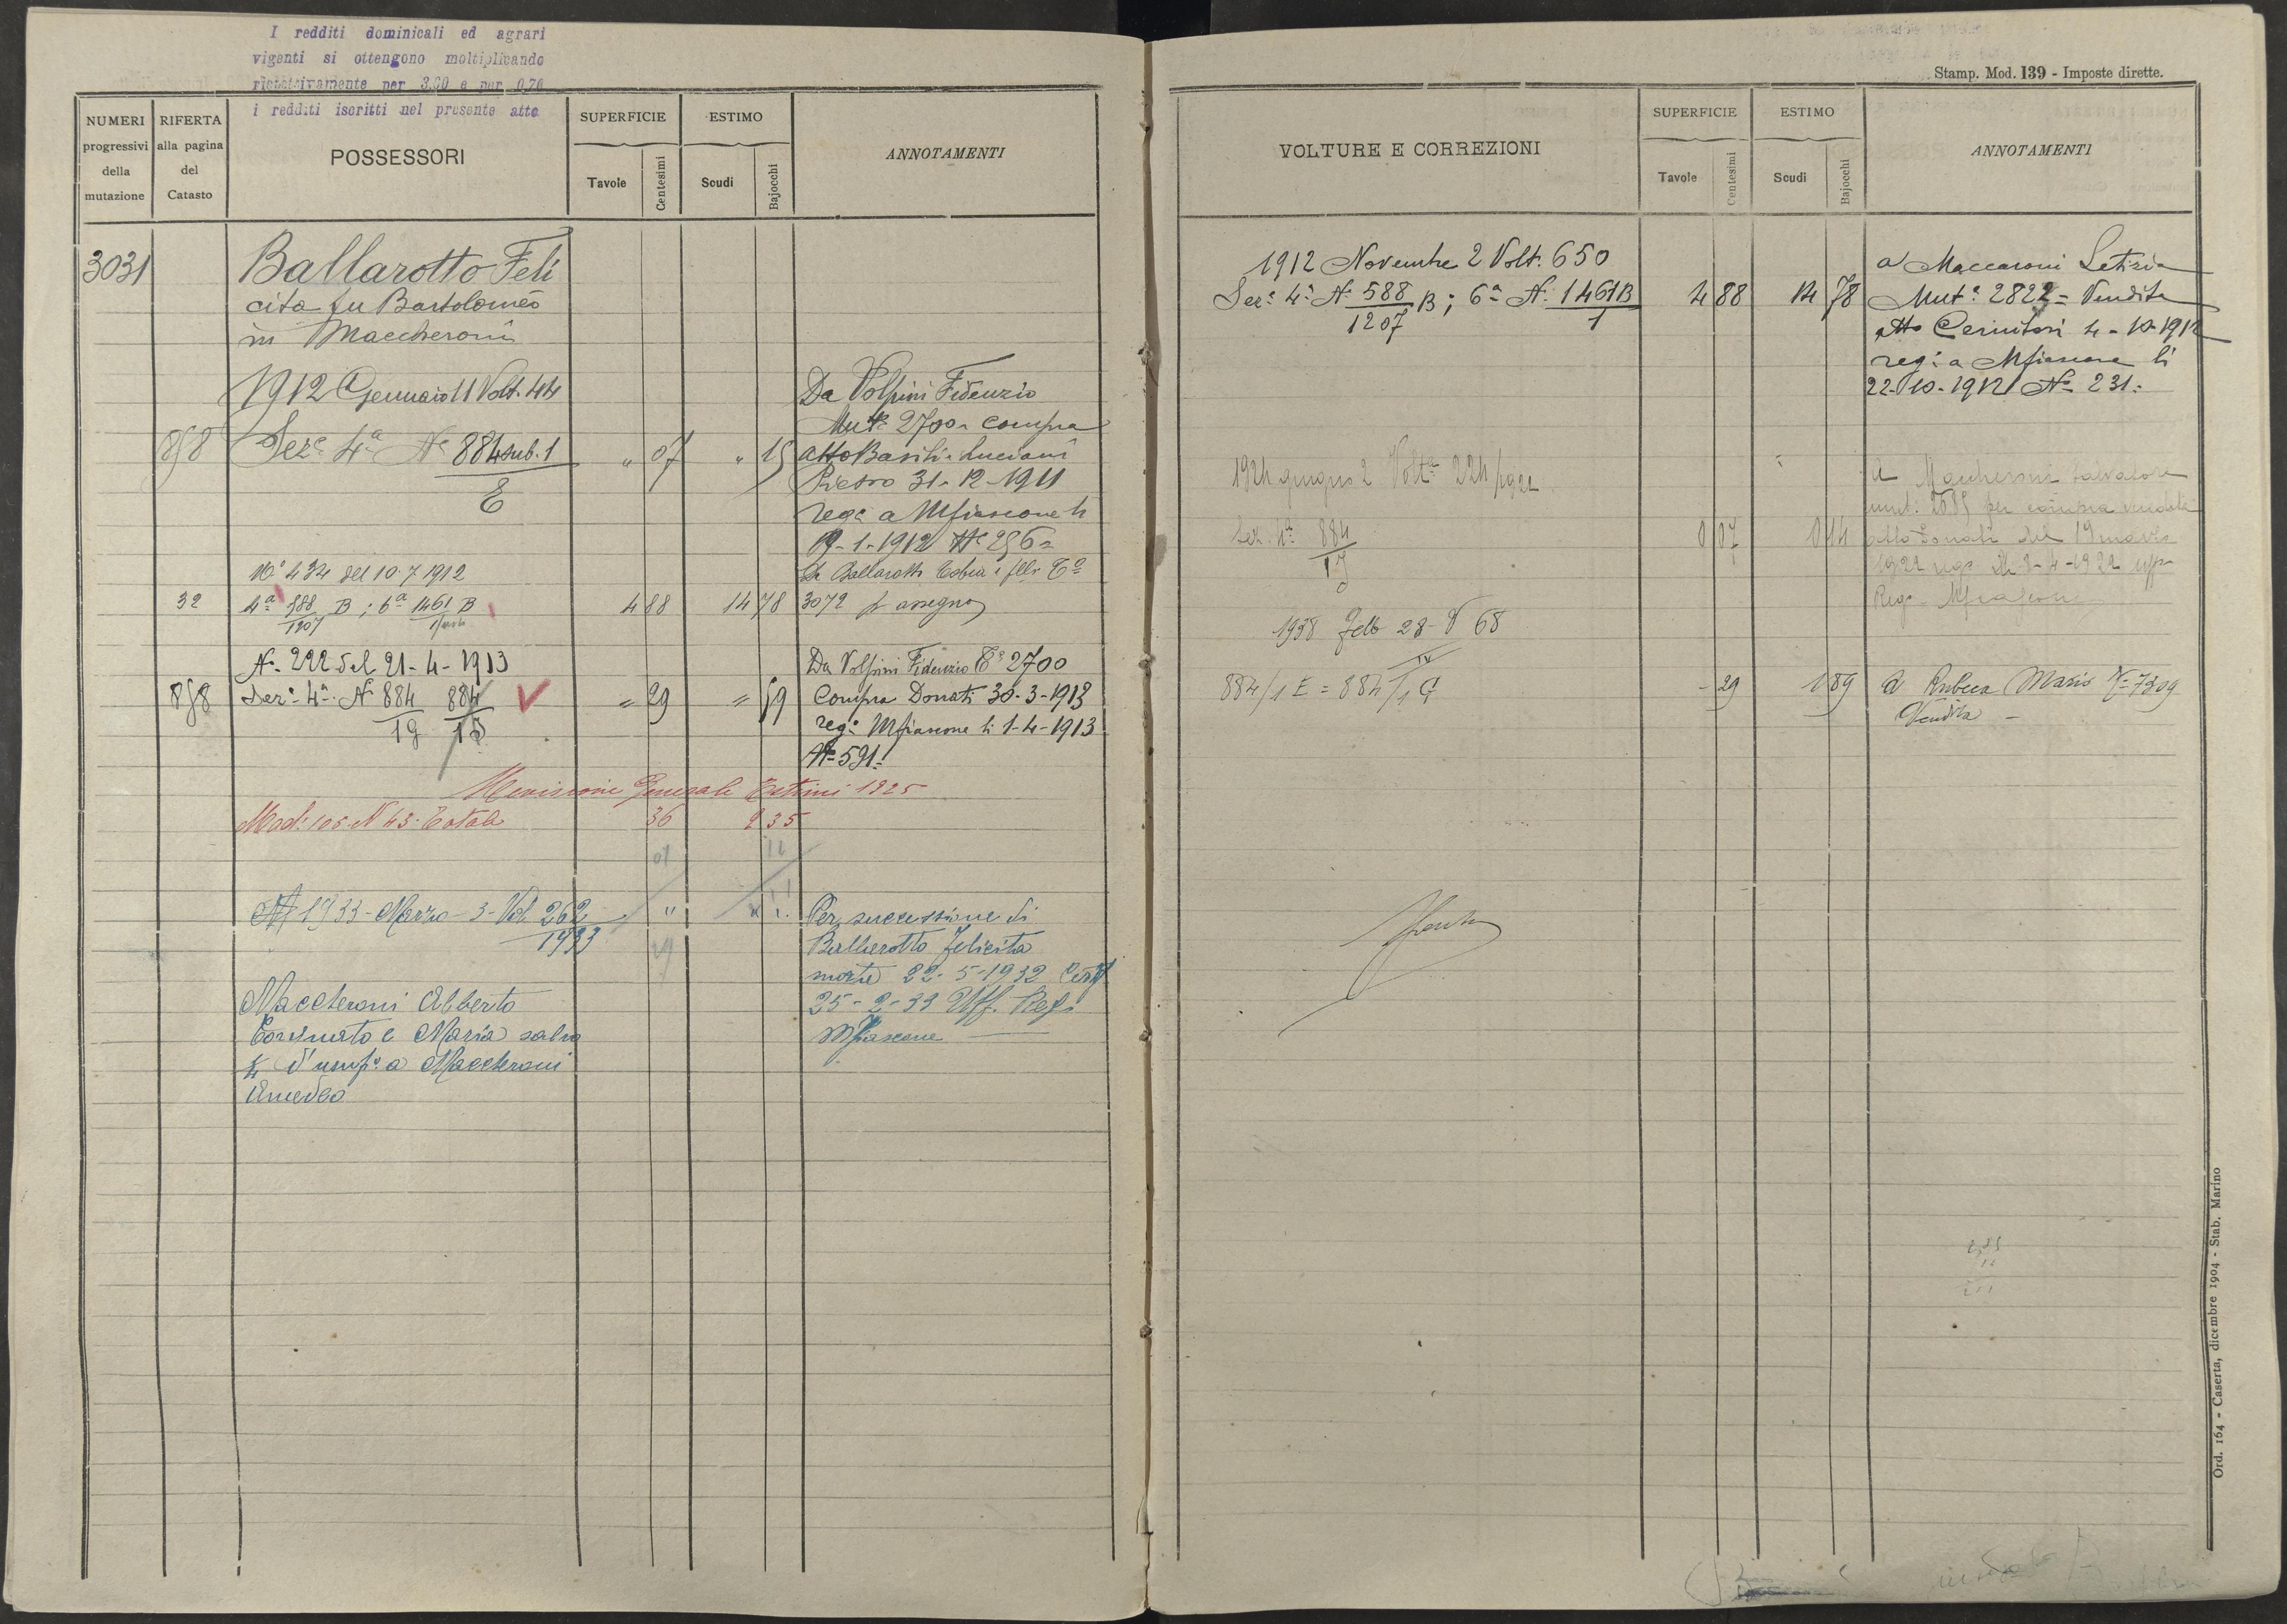 I redditi dominicali ed agrari
vigenti si ottengono moltiplicando
rispettivamente per 3.60 e per 0,70
i redditi iscritti nel presente atto
NUMERI progressivi della mutazione
RIFERTA alla pagina del Catasto
POSSESSORI
SUPERFICIE
Tavole
Centesimi
ESTIMO
Scudi
Bajocchi
ANNOTAMENTI
3031
Ballarotto Feli
cita fu Bartolomeo
in Maccheroni
1912 Gennaio 11 Volt. 44
Da Volpini Fidenzio
Mutª 2700 compra
858 Sezª 4ª Nº 884 sub. 1 " 07 " 15 atto Basili Luciani
E
Pietro 31-12-1911
regª a Mfiascone li
19-1-1912 Nº 256
Nº 434 del 10-7 1912
Da Ballarotti
32 4ª 588 B; 6ª 1461 B 4 88 14 78 3072 p assegno
1207 1
Nº 222 del 21-4-1913
Da Volpini Fidenzio Tª 2700
858 Serª 4ª Nº 884 884 = 29 = 59 Compra Donati 30-3-1913
19
regª Mfiascone li 1-4-1913
Nº 591
Revisione Generale Estimi 1925
Mod. 108 N 43 Totale 36 2 35
1933 - Marzo - 3 - Vol 262
1933
Per successione di
Ballarotto Felicita
morta 22-5-1932
25-2-33 Uff. Reg.
Mfiascone
Maccheroni Alberto
e Maria salvo
d'usufº a Maccheroni
Amedeo
Stamp. Mod. 139 - Imposte dirette.
VOLTURE E CORREZIONI
SUPERFICIE
Tavole
Centesimi
ESTIMO
Scudi
Bajocchi
ANNOTAMENTI
1912 Novembre 2 Volt. 650
a Maccaroni Letizia
Serª 4ª Nº 588 B; 6ª Nº 1461 B 4 88 14 78 Mutª 2822 = Vendita
1207 1
atto 4-10-1912
regª a Mfiascone li
22-10-1912 Nº 231
giugno 2 Voltª
A Maccheroni Salvatore
mut. per
Sez. 4ª 884 0 07 0 14 atto Donati del 19 marzo
1922 2-4-1922
Reg. Mfiascone
1938 Febb 28 - V 68
884/1 E = 884/1 G - 29 1 89 a Rubeca Mario T-7309
Vendita
Ord. 164 - Caserta, dicembre 1904 - Stab. Marino